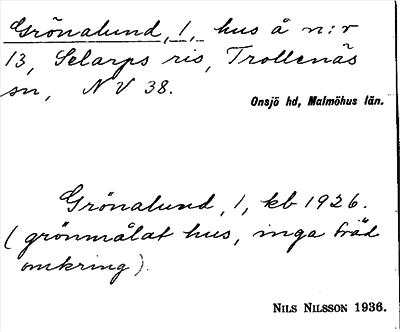 Grönalund, 1, hus å n:r
13, Selarps ris, Trollenäs
sn, NV 38.
Onsjö hd, Malmöhus län.
Grönalund, 1, kb 1926.
(grönmålat hus, inga träd
omkring).
NILS NILSSON 1936.